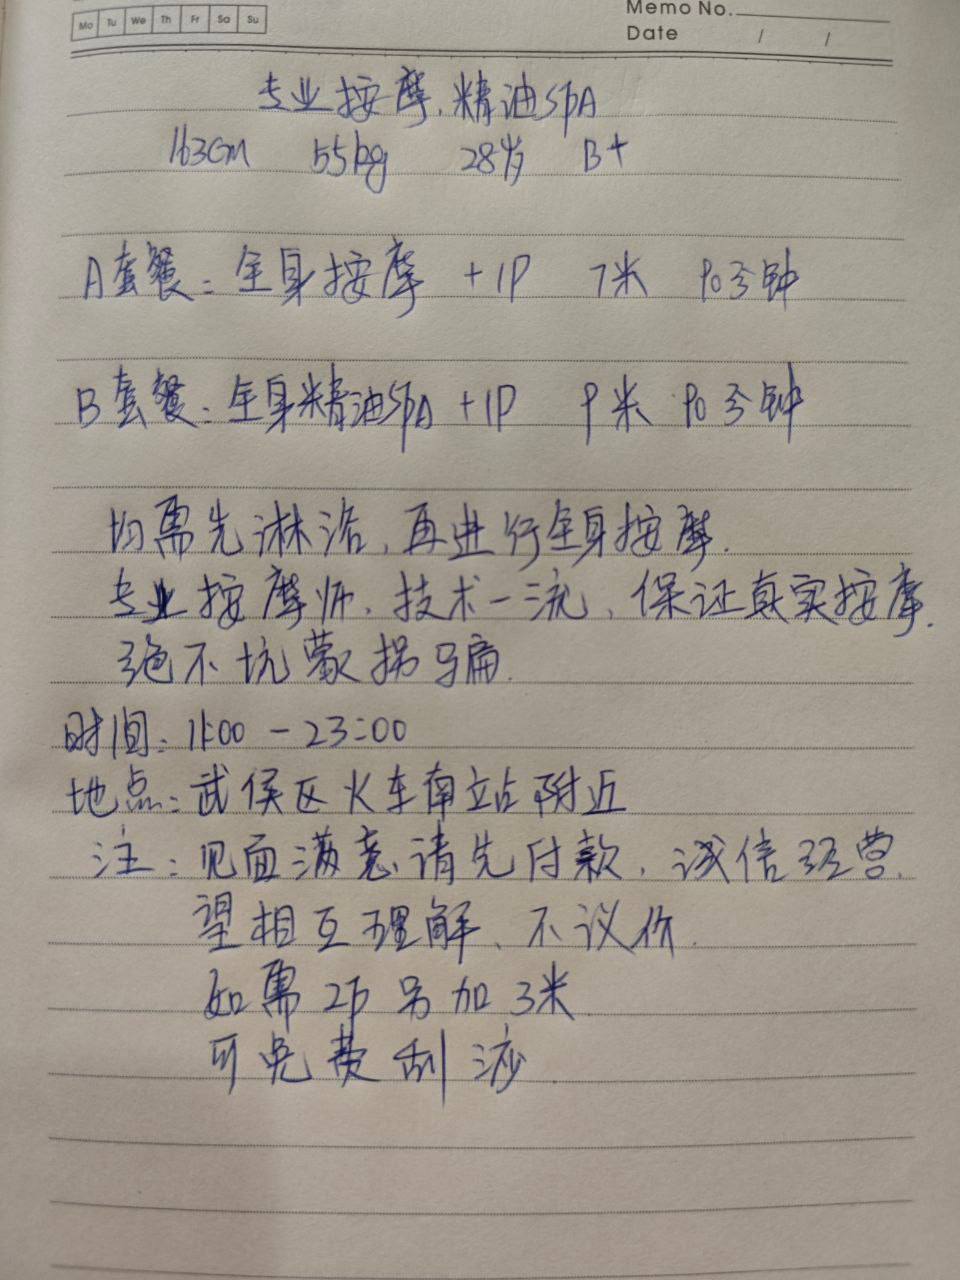 Mo Tu We Th Fr Sa Su
Memo No.
Date / /
专业按摩.精油SPA
163cm 55kg 28岁 B+
A套餐:全身按摩 +1P 7米 90分钟
B套餐:全身精油SPA +1P 9米 90分钟
均需先淋浴,再进行全身按摩.
专业按摩师.技术一流,保证真实按摩.
绝不坑蒙拐骗.
时间:11:00-23:00
地点:武侯区火车南站附近
注:见面满意.请先付款.诚信经营.
望相互理解、不议价.
如需2P另加3米.
可免费刮痧.